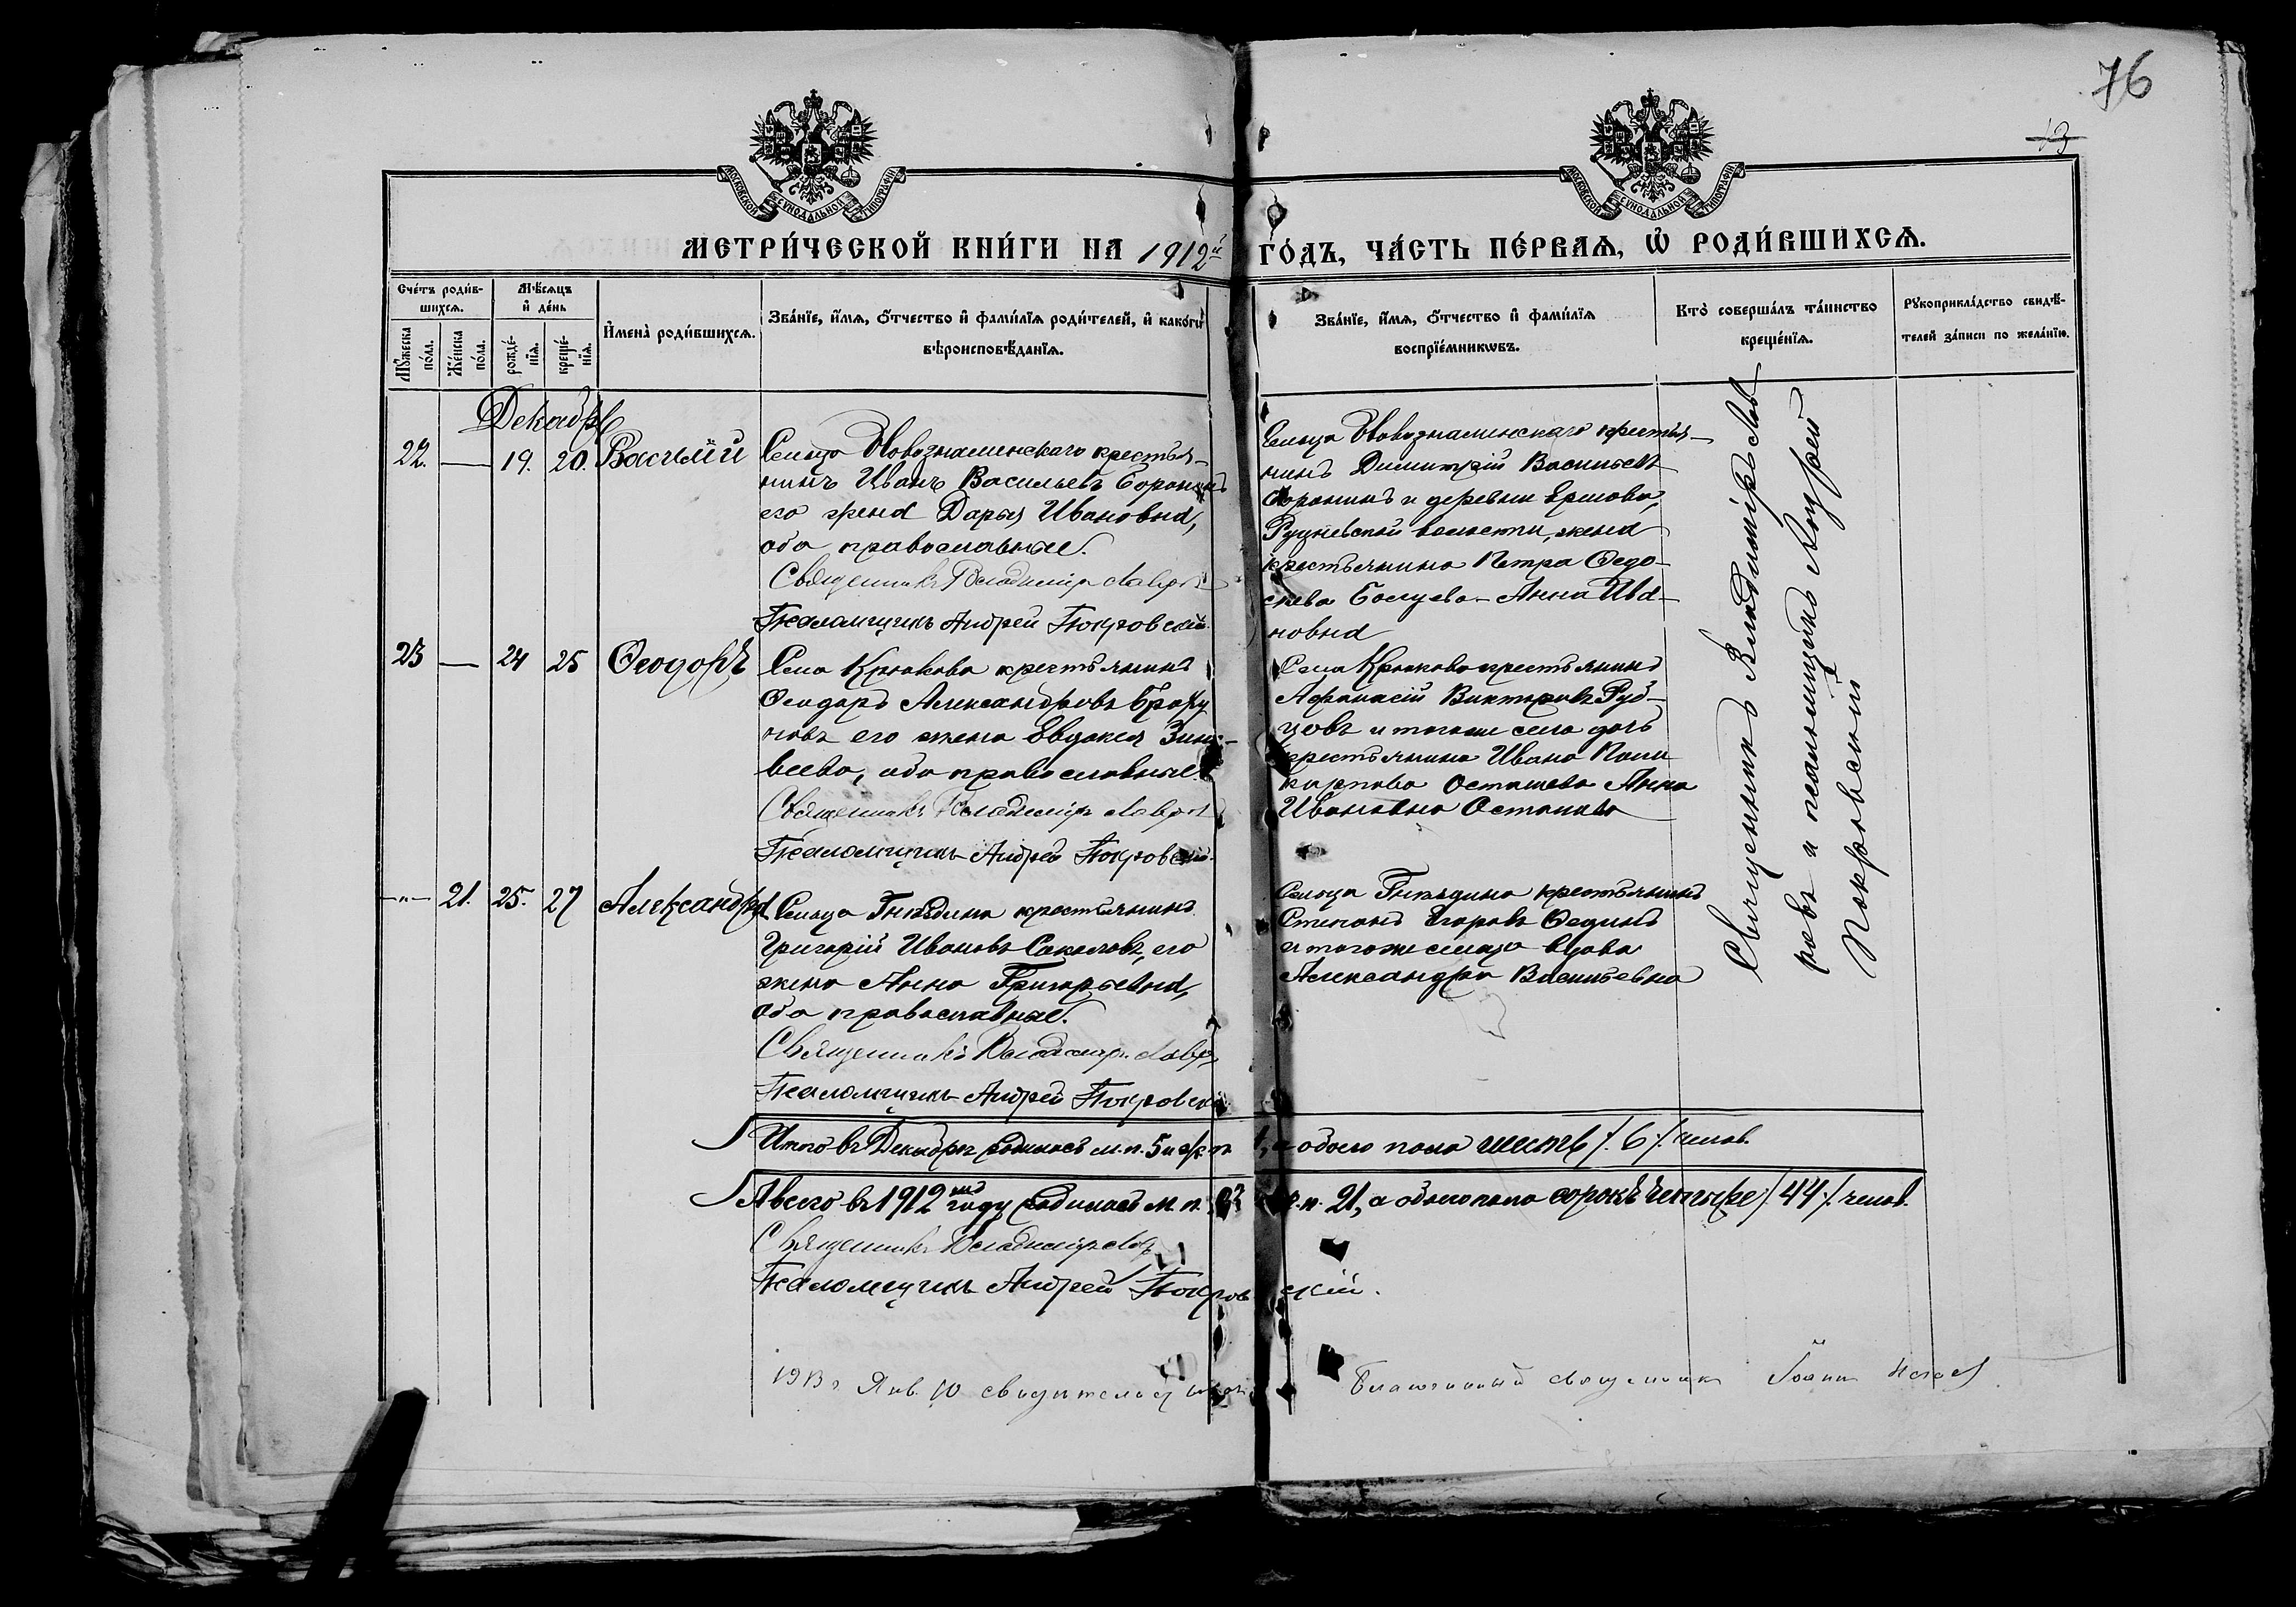 76
13
МОСКОВСКОЙ СѴНОДАЛЬНОЙ ТИПОГРАФІИ
МОСКОВСКОЙ СѴНОДАЛЬНОЙ ТИПОГРАФІИ
МЕТРИ́ЧЕСКОЙ КНИ́ГИ НА 1912й ГО́ДЪ, ЧА́СТЬ ПЕ́РВАѦ, Ѡ҆ РОДИ́ВШИХСѦ.
Сче́тъ роди́в-
шихсѧ.
Мꙋ́жеска по́ла.
Же́нска по́ла.
Мѣ́сѧцъ
и҆ де́нь
рожде́-
нїѧ.
креще́-
нїѧ.
И҆мена̀ роди́вшихсѧ.
Зва́нїе, и҆́мѧ, ѻ҆́тчество и҆ фами́лїѧ роди́телей, и҆ како́гѡ
вѣроисповѣ́данїѧ.
Зва́нїе, и҆́мѧ, ѻ҆́тчество и҆ фами́лїѧ
воспрїе́мникѡвъ.
Кто̀ соверша́лъ та́инство
креще́нїѧ.
Рꙋкоприкла́дство свидѣ́-
телей за́писи по жела́нїю.
Декабрь
22. — 19. 20. Василій
Сельца Новознаменскаго крестья-
нинъ Иванъ Васильевъ Соронинъ
его жена Дарья Ивановна,
оба православные.
Священникъ Владиміръ Лавровъ
Псаломщикъ Андрей Покровскій.
Сельца Новознаменскаго крестья-
нинъ Димитрій Васильевъ
Соронинъ и деревни Ершова,
волости, жена
крестьянина Петра Ѳедо-
сѣева Анна Ива-
новна
23 — 24 25 Ѳеодоръ
Села Крюкова крестьянинъ
Ѳеодоръ Александровъ
его жена Евдокія Зинов-
ьева, оба православные.
Священникъ Владиміръ Лавровъ
Псаломщикъ Андрей Покровскій.
Села Крюкова крестьянинъ
Аѳанасій Викторовъ Руб-
цовъ и того же села дочь
крестьянина Ивана Поли-
карпова Осташева Анна
Ивановна Осташева
-"- 21. 25. 27 Александра
Сельца Гнѣздина крестьянинъ
Григорій Ивановъ Соколовъ, его
жена Анна Григорьевна,
оба православные.
Священникъ Владиміръ Лавровъ
Псаломщикъ Андрей Покровскій
Сельца Гнѣздина крестьянинъ
Степанъ Егоровъ Ѳединъ
и того же сельца вдова
Александра Васильевна
Священникъ Владиміръ Лав-
ровъ и псаломщикъ Андрей
Покровскій
Итого въ Декабрѣ родилось м.п. 5 и ж.п. 1, а обоего пола шесть /.6./ челов.
А всего въ 1912мъ году родилось м.п. 23 ж.п. 21, а обоего пола сорокъ четыре /.44./ челов.
Священникъ Владиміръ Лавровъ
Псаломщикъ Андрей Покровскій.
1913 г. Янв. 10 свидѣтельствовалъ Благочинный священникъ Іоаннъ